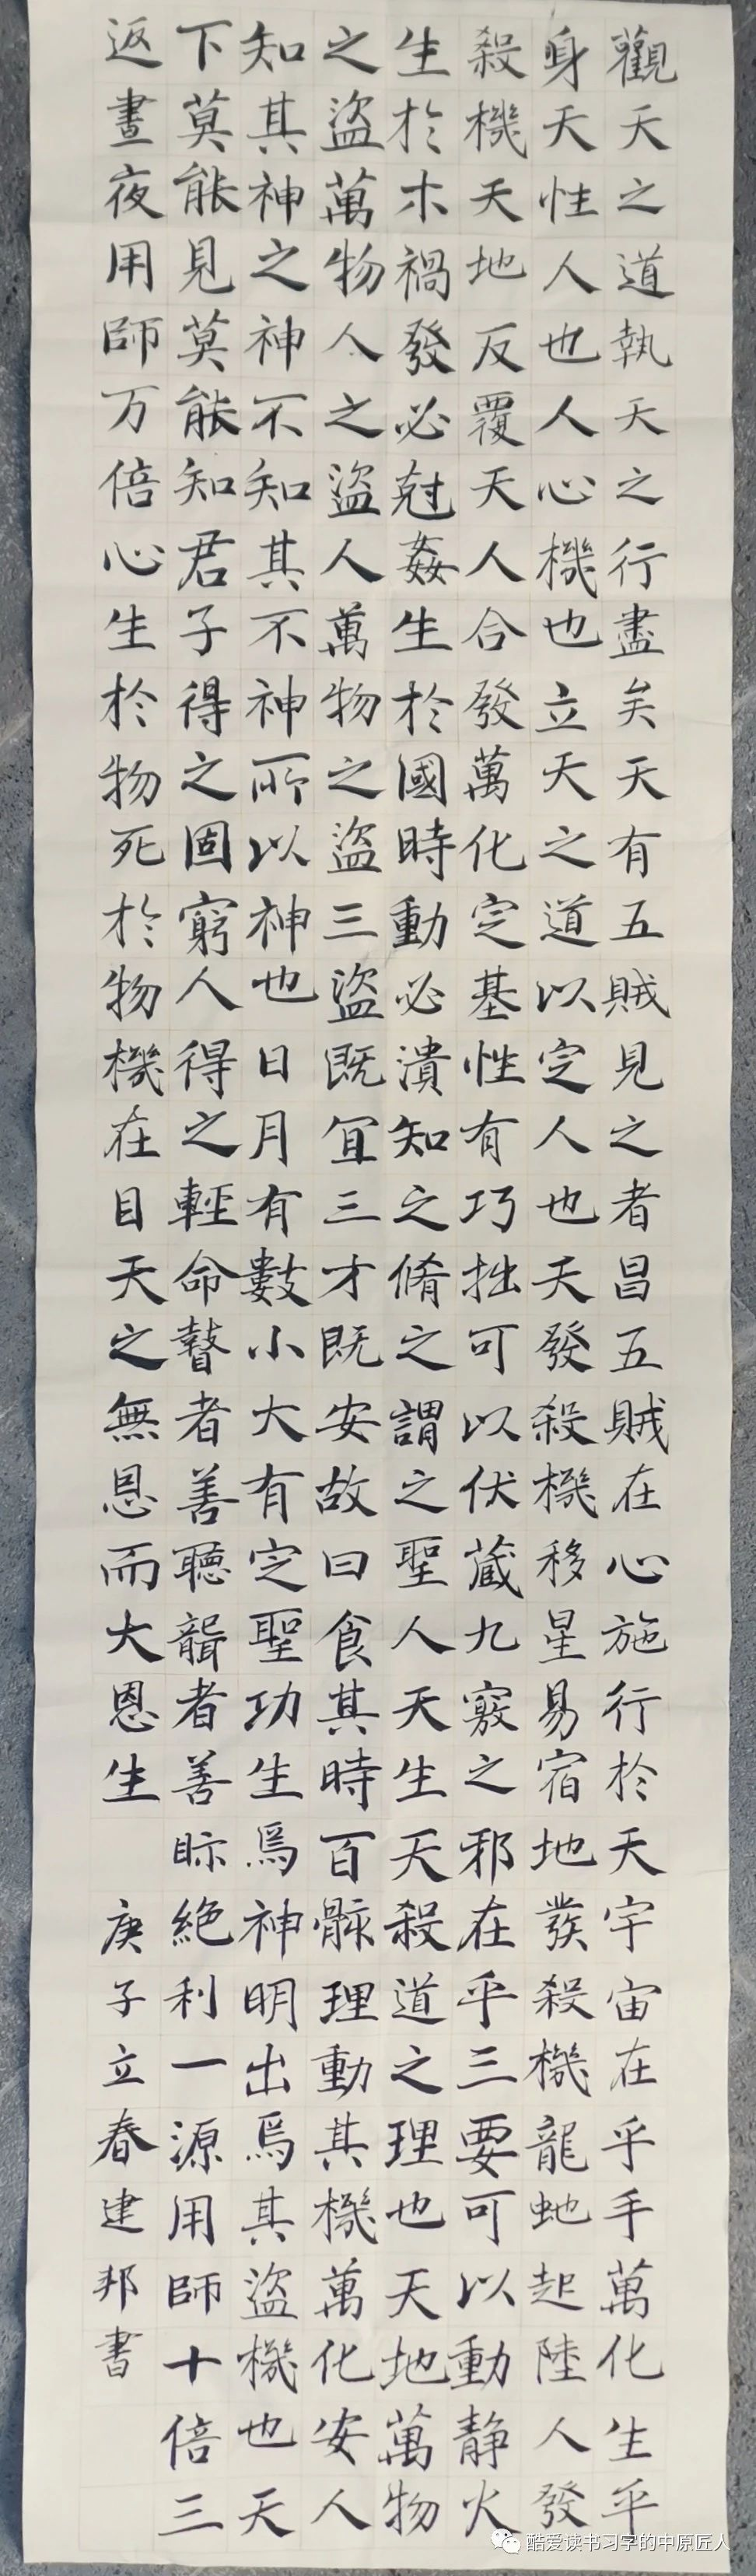 觀天之道執天之行盡矣天有五賊見之者昌五賊在心施行於天宇宙在乎手萬化生乎
身天性人也人心機也立天之道以定人也天發殺機移星易宿地發殺機龍虵起陸人發
殺機天地反覆天人合發萬化定基性有巧拙可以伏藏九竅之邪在乎三要可以動静火
生於木禍發必尅姦生於國時動必潰知之脩之謂之聖人天生天殺道之理也天地萬物
之盜萬物人之盜人萬物之盜三盜既宜三才既安故曰食其時百骸理動其機萬化安人
知其神之神不知其不神所以神也日月有數小大有定聖功生焉神明出焉其盜機也天
下莫能見莫能知君子得之固窮人得之輕命瞽者善聽聾者善眎絶利一源用師十倍三
返晝夜用師万倍心生於物死於物機在目天之無恩而大恩生 庚子立春建邦書
酷爱读书习字的中原匠人